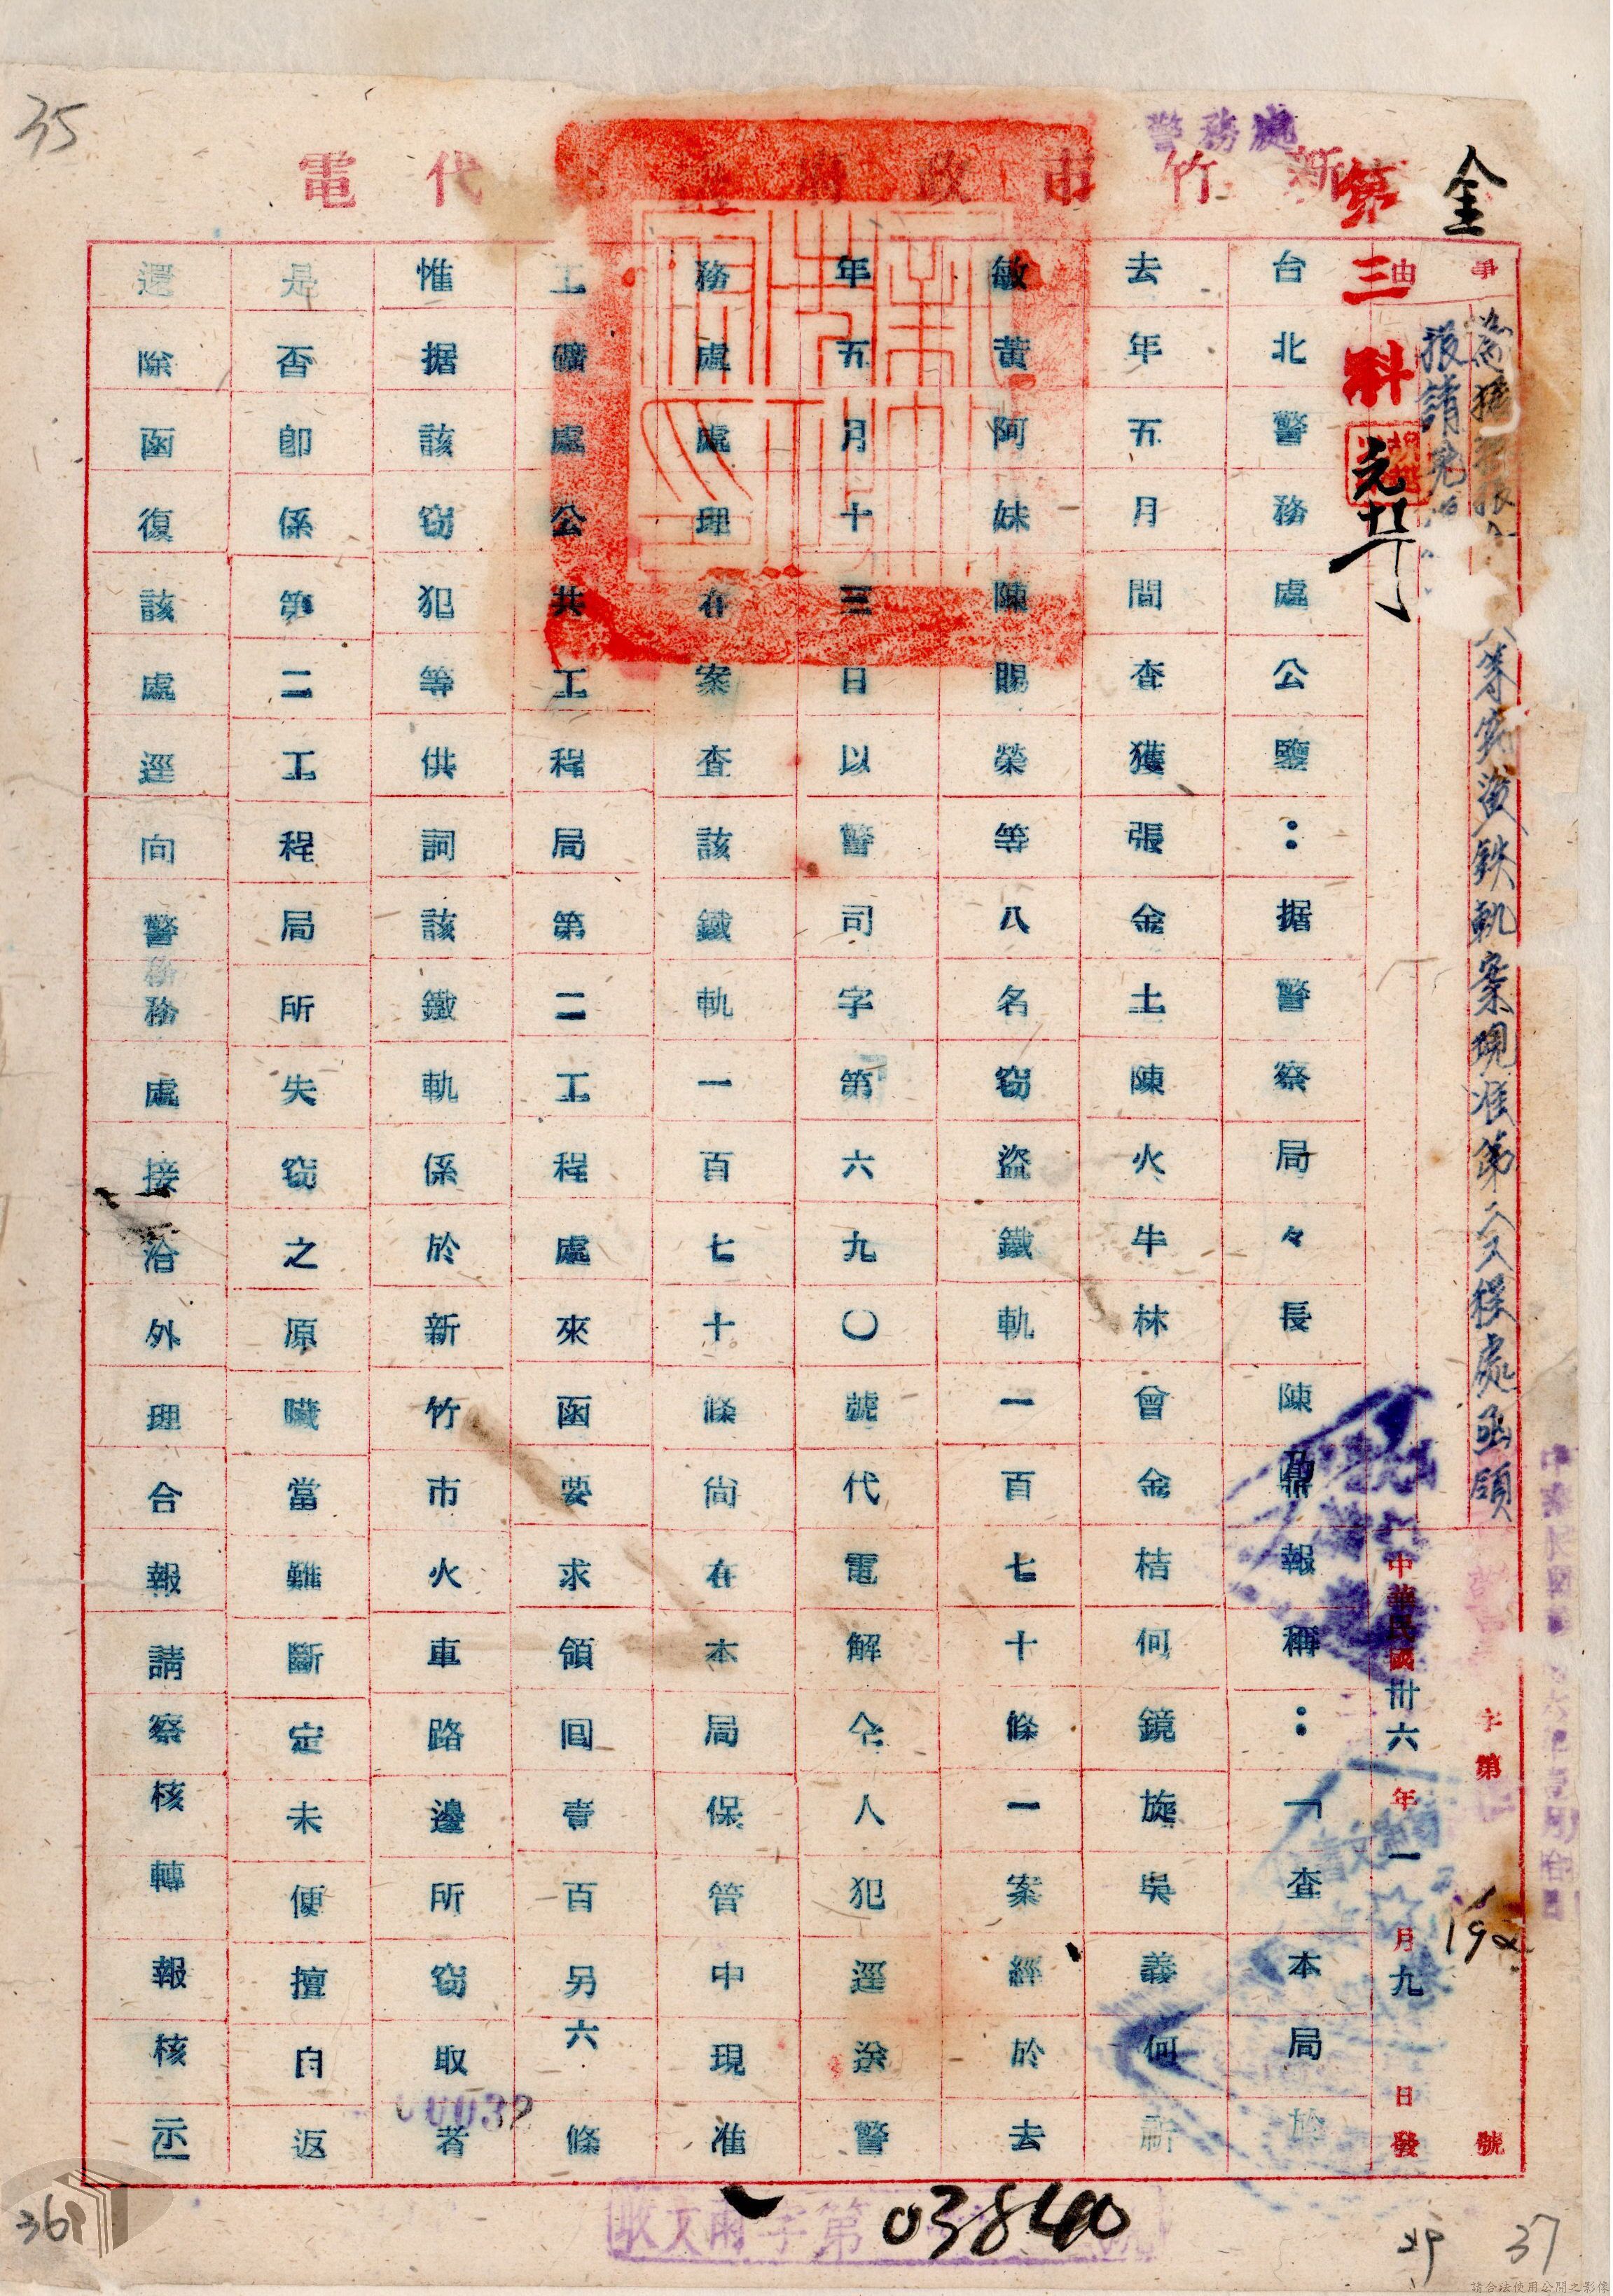 35
警務處
新竹市政府 代電
金
第三科
事由
報請
等竊盜鉄軌案現准第二工程處函領
字第 號
192
中華民國卅六年一月九日發
台北警務處公鑒：据警察局々長陳鼎報稱：「查本局於
去年五月間查獲張金土陳火牛林曾金桔何鏡旋吳義何新
敏黃阿妹陳賜榮等八名窃盜鐵軌一百七十條一案經於去
年五月十三日以警司字第六九〇號代電解仝人犯逕送警
務處處理在案查該鐵軌一百七十條尙在本局保管中現准
工礦處公共工程局第二工程處來函要求領回壹百另六條
惟据該窃犯等供詞該鐵軌係於新竹市火車路邊所窃取者
是否卽係第二工程局所失窃之原贓當難斷定未便擅自返
還除函復該處逕向警務處接洽外理合報請察核轉報核示
00032
收文 字第 號
03840
36
37
請合法使用公開之影像